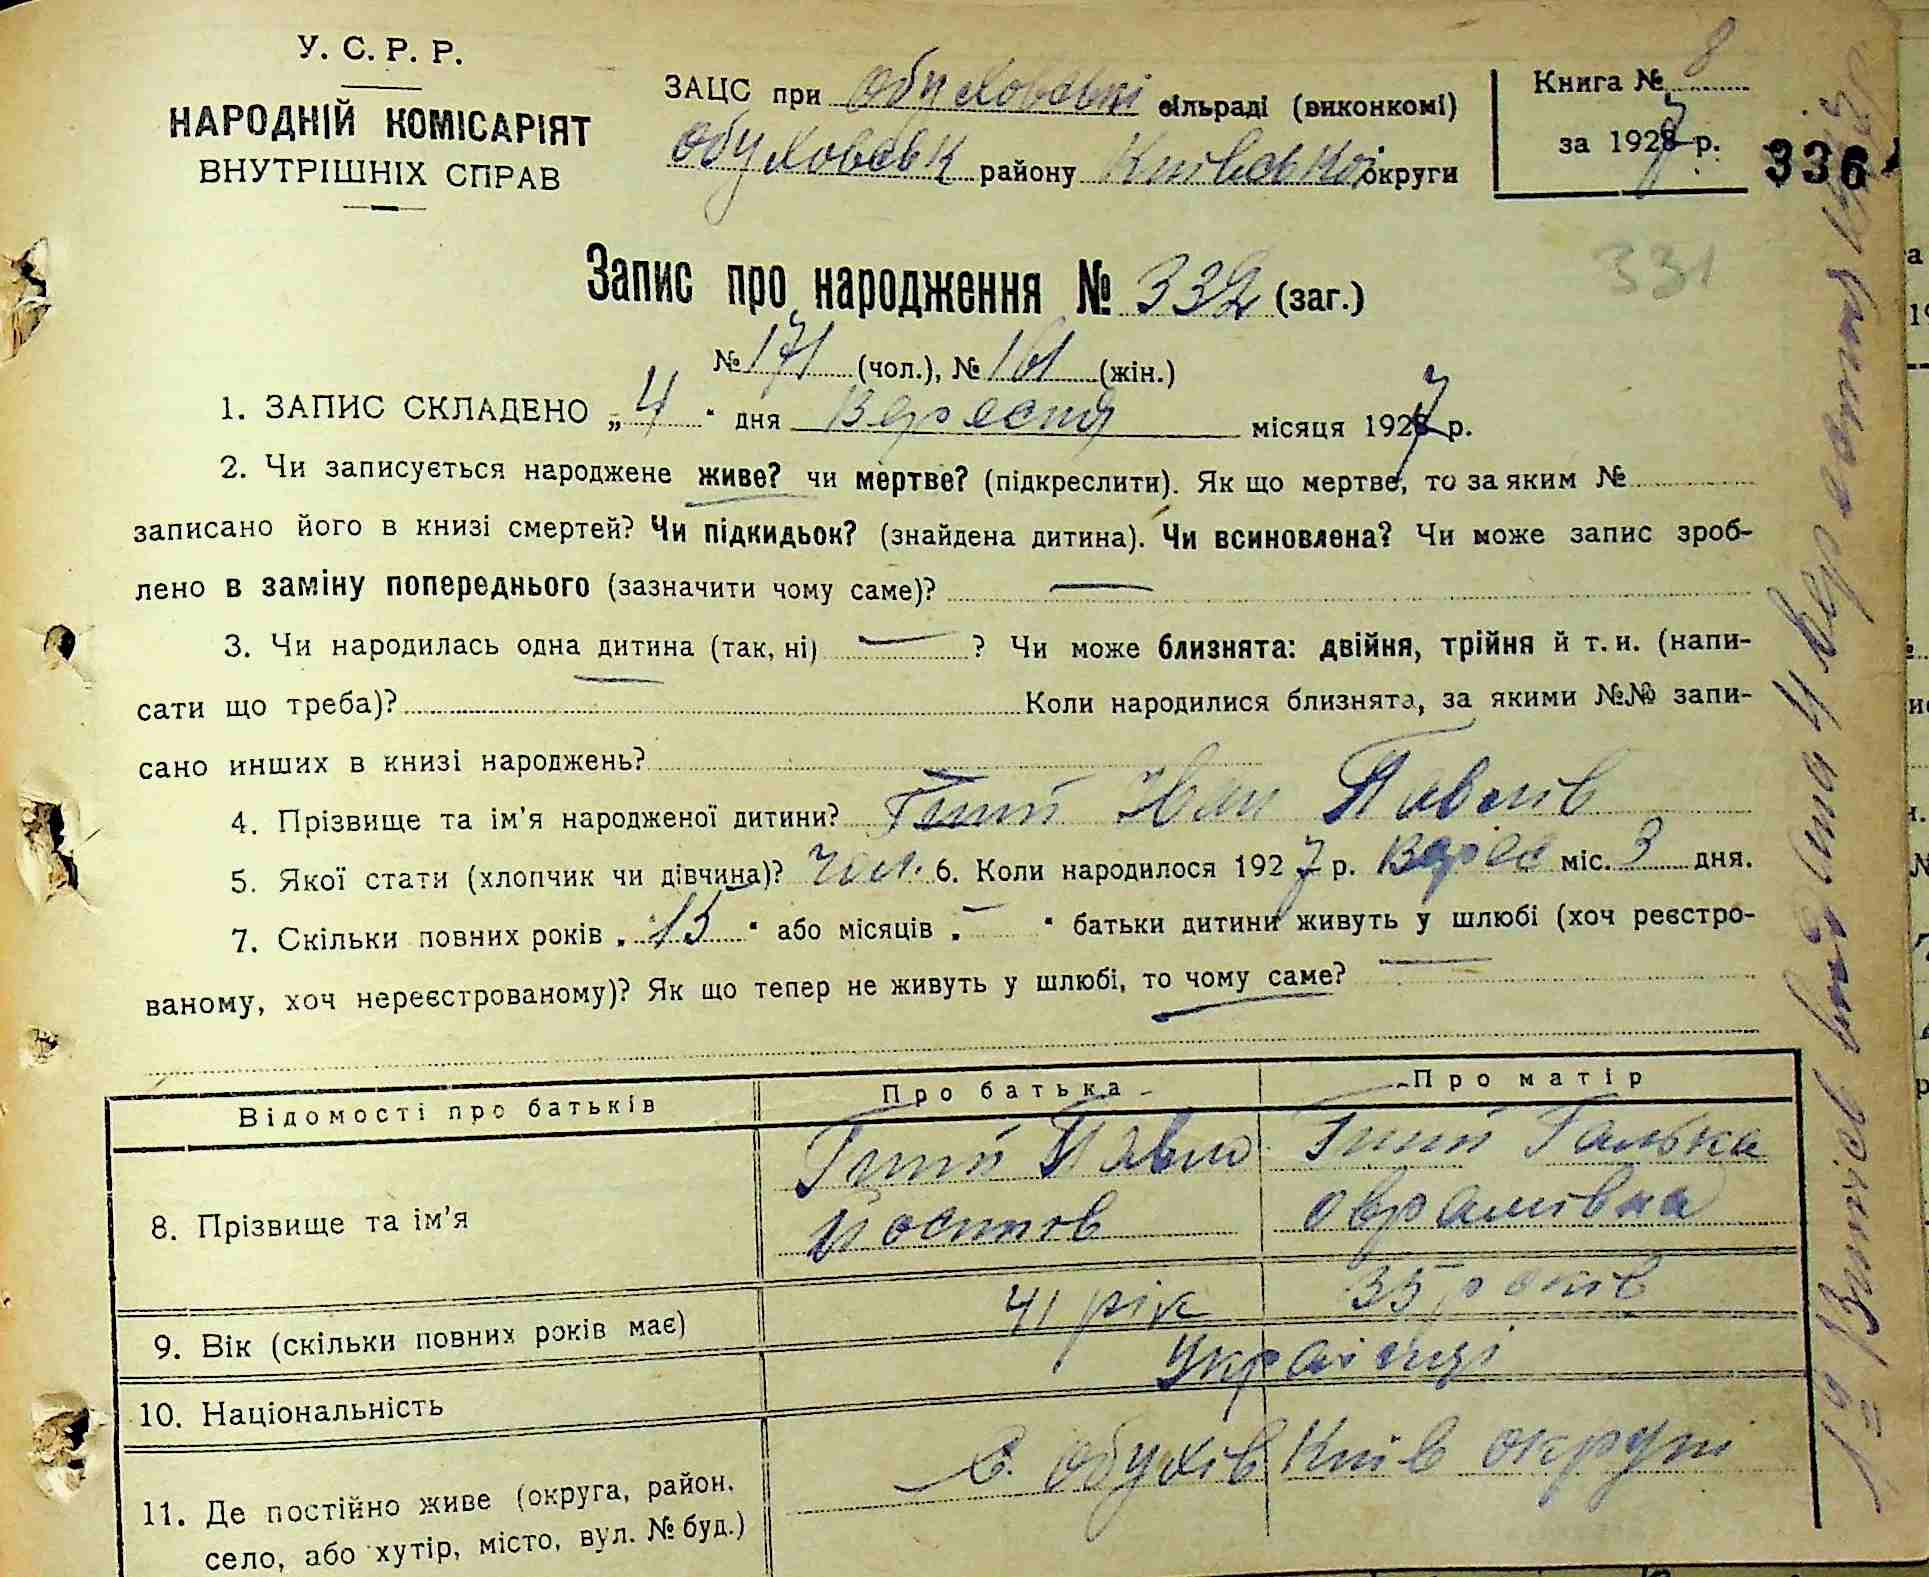 У. С. Р. Р.
НАРОДНІЙ КОМІСАРІЯТ
ВНУТРІШНІХ СПРАВ
ЗАЦС при Обуховські сільраді (виконкомі)
Обуховськ району Київської округи
Книга № 8
за 1927 р.
336
331
Запис про народження № 332 (заг.)
№ 171 (чол.), № 161 (жін.)
1. ЗАПИС СКЛАДЕНО „4“ дня Вересня місяця 1927 р.
2. Чи записується народжене живе? чи мертве? (підкреслити). Як що мертве, то за яким №
записано його в книзі смертей? Чи підкидьок? (знайдена дитина). Чи всиновлена? Чи може запис зроб-
лено в заміну попереднього (зазначити чому саме)? —
3. Чи народилась одна дитина (так, ні) — ? Чи може близнята: двійня, трійня й т. и. (напи-
сати що треба)? Коли народилися близнята, за якими №№ запи-
сано инших в книзі народжень?
4. Прізвище та ім’я народженої дитини? Іван Павлів
5. Якої стати (хлопчик чи дівчина)? чол. 6. Коли народилося 1927 р. Верес міс. 3 дня.
7. Скільки повних років „15“ або місяців „—“ батьки дитини живуть у шлюбі (хоч реєстро-
ваному, хоч нереєстрованому)? Як що тепер не живуть у шлюбі, то чому саме? —
Відомості про батьків Про батька Про матір
8. Прізвище та ім’я Павло Галька
Оврамівна
9. Вік (скільки повних років має) 41 рік 35 років
10. Національність Українці
11. Де постійно живе (округа, район, с. Обухів Київ округи
село, або хутір, місто, вул. № буд.)
видана 4 вересня